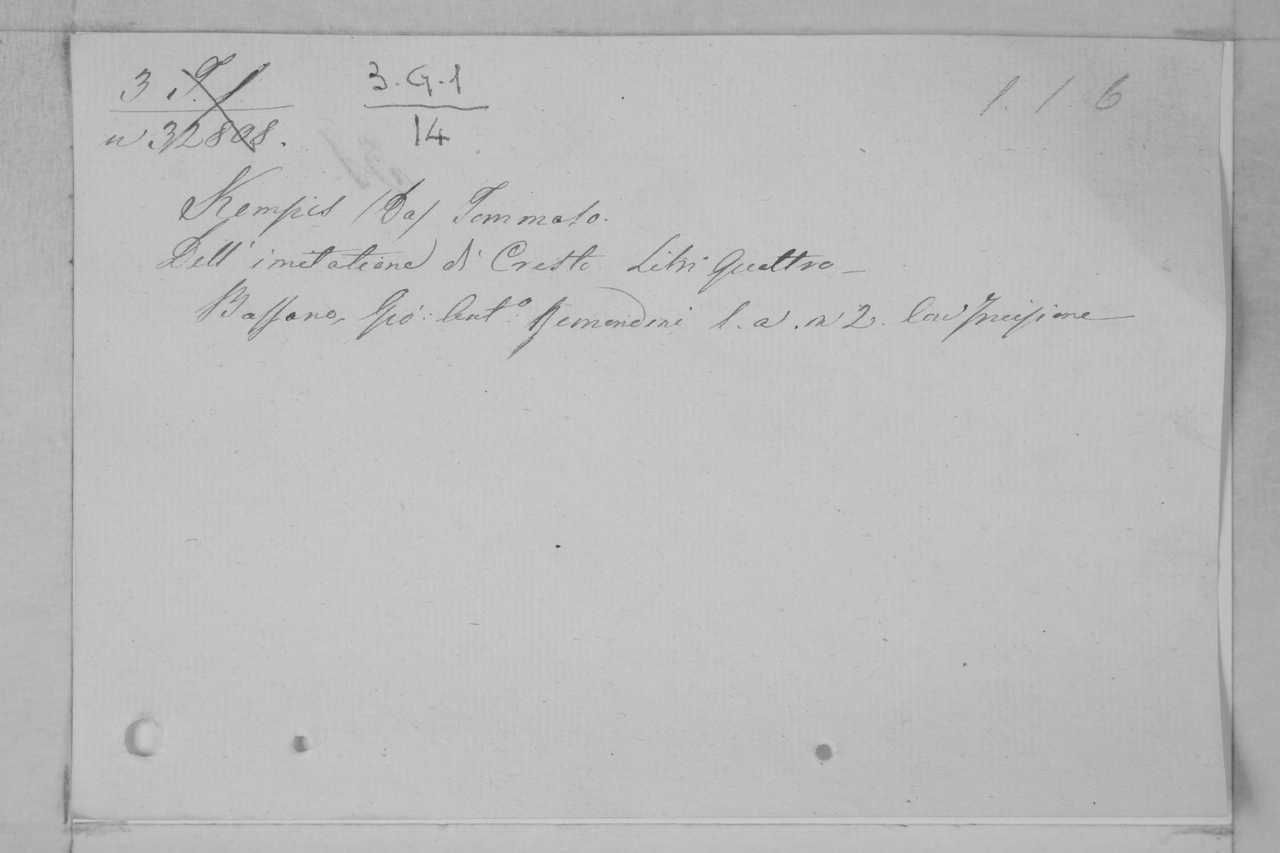 3 T. 1 3.G.1 1. 1. 6
n 32808. 14
Kempis (Da) Tommaso.
Dell' imitatione di Cristo Libri quattro -
Bassano, Gio: Ant.º Remondini s. a. in 12. Con Incisione